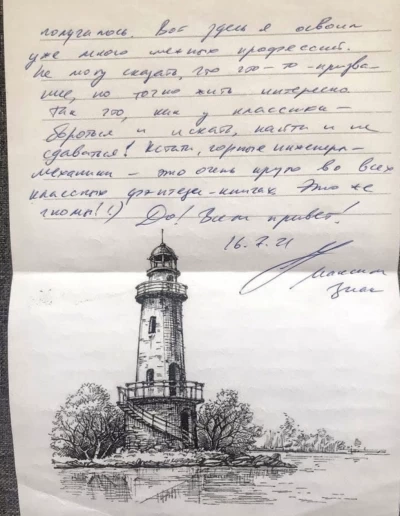 получилось. Вот здесь я освоил
уже много разных профессий.
Не могу сказать, что это-то-призва-
ние, но точно жить интересно
Так что, как у классика –
бороться и искать, найти и не
сдаваться! Кстати, горные инженеры-
механики – это очень круто во всех
классных фэнтези-книгах. Это же
гномы! :) Да! Всем привет!
16.7.21
Максим